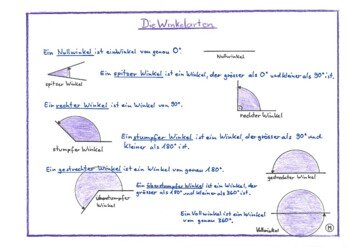 Die Winkelarten
Ein Nullwinkel ist ein Winkel von genau 0°
Nullwinkel
Ein spitzer Winkel ist ein Winkel, der grösser als 0° und kleiner als 90° ist.
spitzer Winkel
rechter Winkel
Ein rechter Winkel ist ein Winkel von 90°.
Ein stumpfer Winkel ist ein Winkel, der grösser als 90° und
kleiner als 180° ist.
stumpfer Winkel
Ein gestreckter Winkel ist ein Winkel von genau 180°.
gestreckter Winkel
Ein überstumpfer Winkel ist ein Winkel, der
grösser als 180° und kleiner als 360° ist.
überstumpfer
Winkel
Ein Vollwinkel ist ein Winkel
von genau 360°.
Vollwinkel